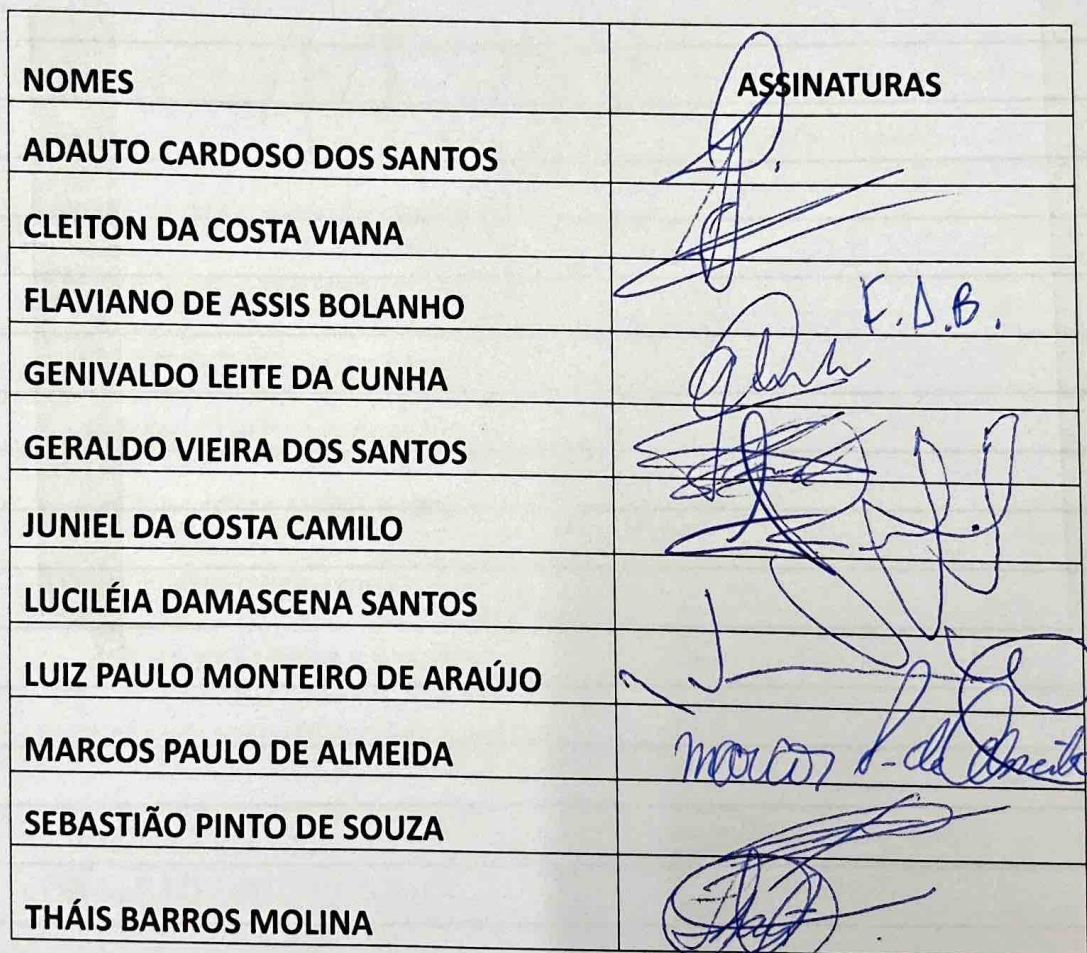 NOMES ASSINATURAS
ADAUTO CARDOSO DOS SANTOS
CLEITON DA COSTA VIANA
FLAVIANO DE ASSIS BOLANHO F.D.B.
GENIVALDO LEITE DA CUNHA
GERALDO VIEIRA DOS SANTOS
JUNIEL DA COSTA CAMILO
LUCILÉIA DAMASCENA SANTOS
LUIZ PAULO MONTEIRO DE ARAÚJO
MARCOS PAULO DE ALMEIDA Marcos P. de
SEBASTIÃO PINTO DE SOUZA
THÁIS BARROS MOLINA